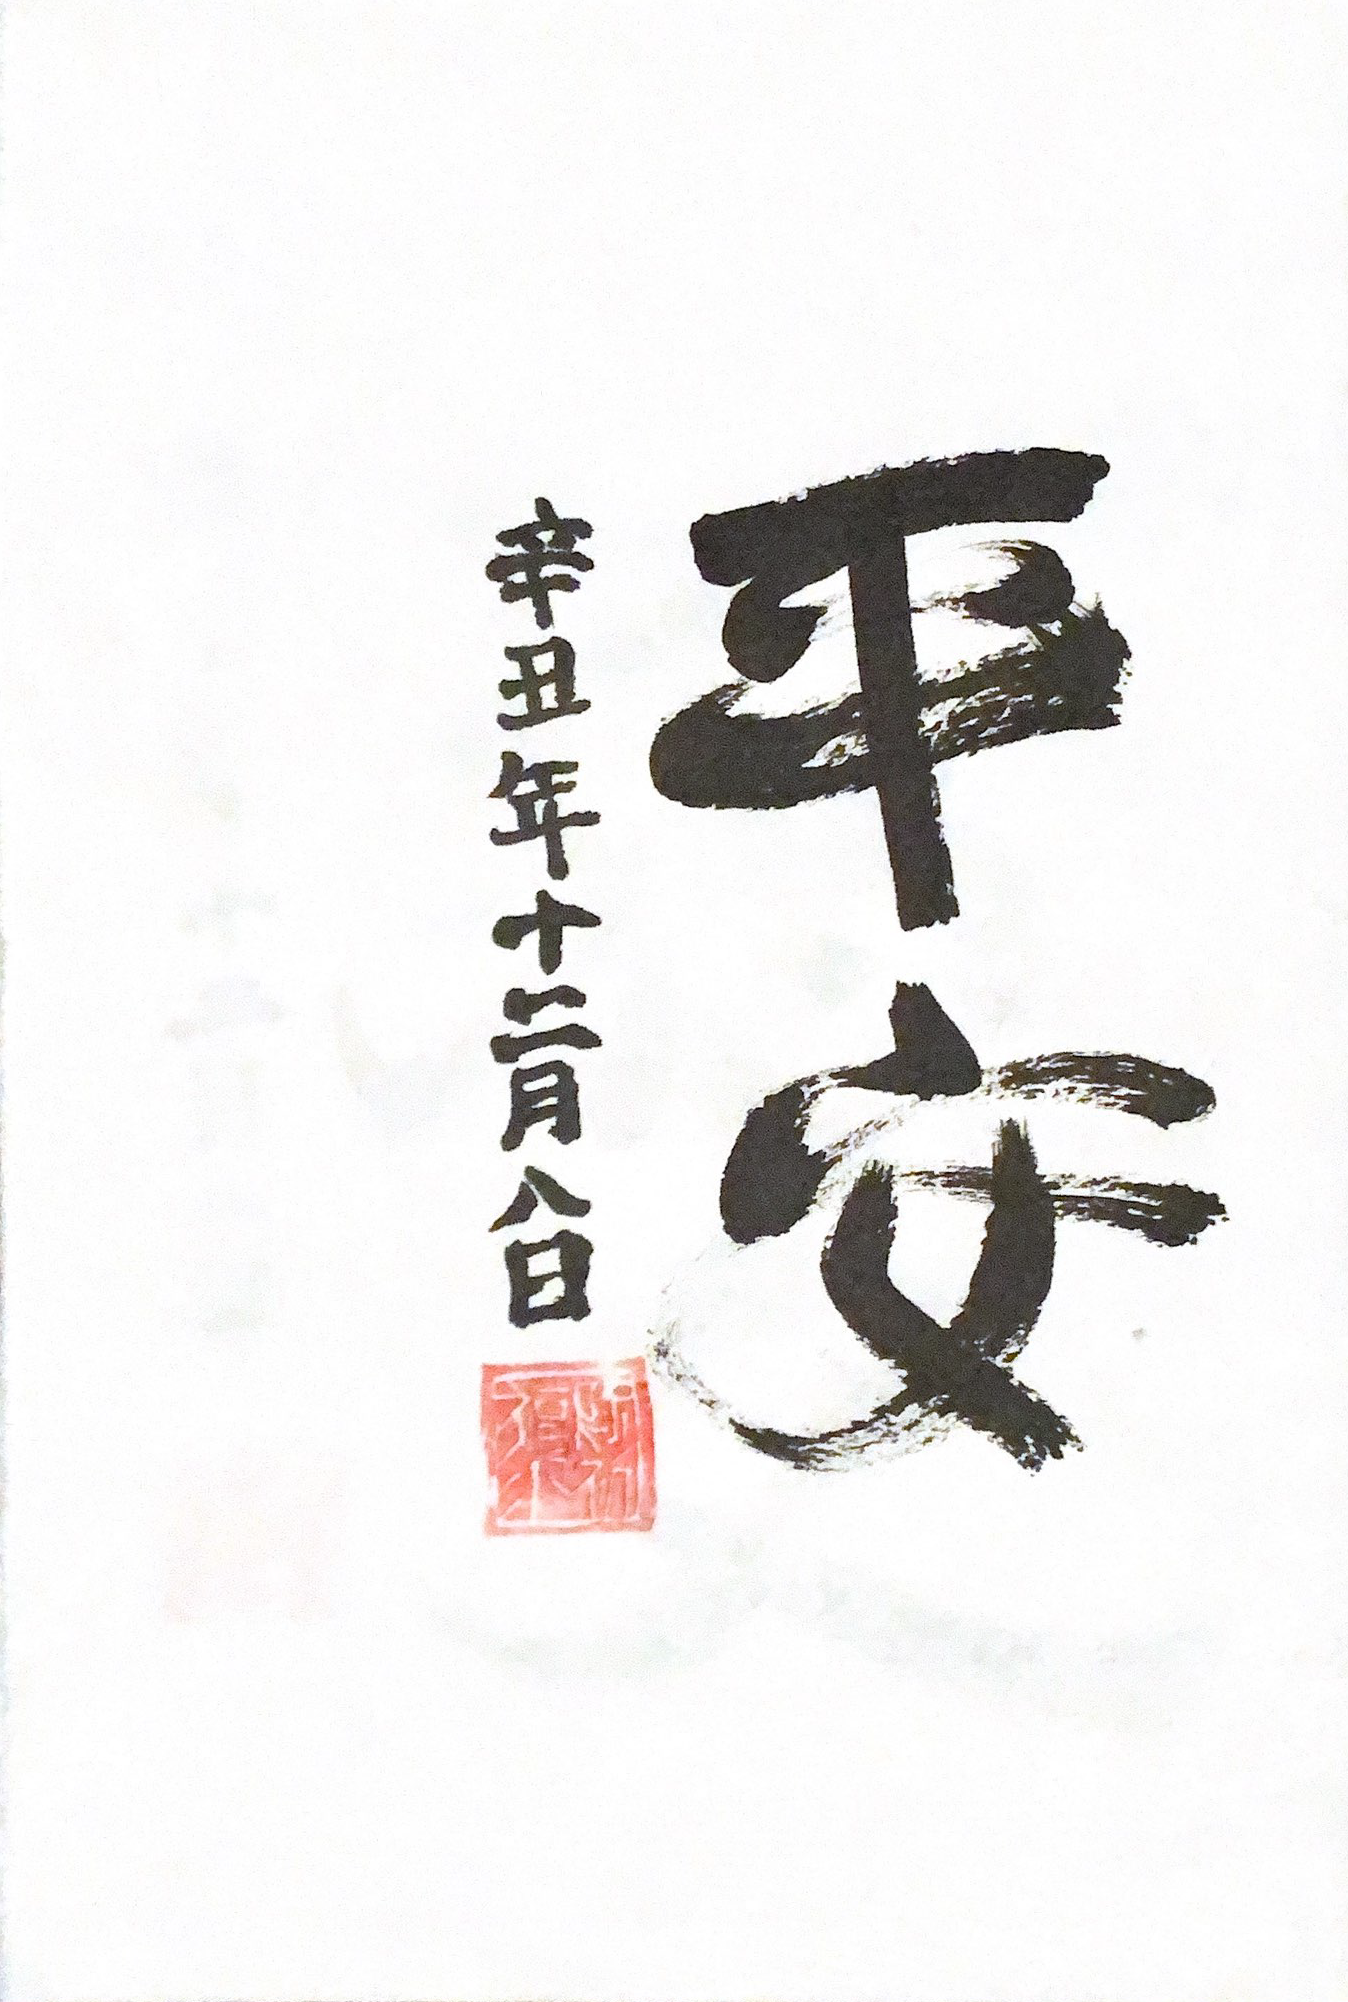 平安
辛丑年十二月八日